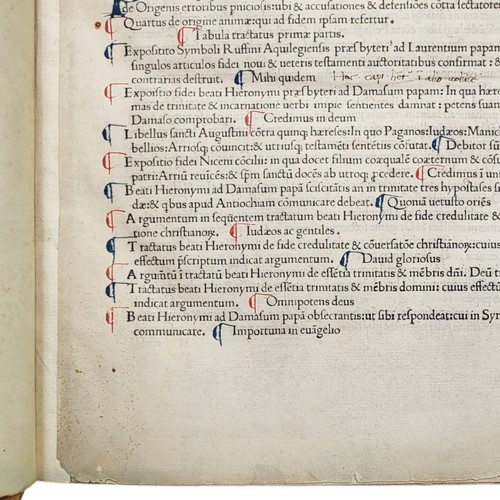 de Origenis erroribus pniciosis: ubi & accusationes & defensiões cõtra sectatore
¶ Quartus de origine animæ: qui ad fidem ipsam refertur.
¶ Tabula tractatus primæ partis.
¶ Expositio Symboli Ruffini Aquilegiensis præsbyteri ad Laurentium papam
singulos articulos fidei noui & ueteris testamenti auctoritatibus confirmat: &
contrarias destruit. ¶ Mihi quidem
¶ Expositio fidei beati Hieronymi præsbyteri ad Damasum papam: In qua hære
mas de trinitate & incarnatione uerbi impie sentientes damnat: petens suam
Damaso comprobari. ¶ Credimus in deum
¶ Libellus sancti Augustini cõtra quinq; hæreses: In quo Paganos: Iudæos: Manich
bellios: Arriosq; couincit: & utriusq; testamẽti sentẽtiis cõfutat. ¶ Debitor sũ
¶ Expositio fidei Niceni cõcilii: in qua docet filium coæqualẽ coæternum & cõsu
patri: Arriũ reuicẽs: & spm sanctũ docẽs ab utroq; pcedere. ¶ Credimus ĩ unũ
¶ Beati Hieronymi ad Damasum papã sciscitãtis an in trinitate tres hypostases si
dæ: & qbus apud Antiochiam comunicare debeat. ¶ Quoniã uetusto oriẽs
¶ Argumentum in sequẽtem tractatum beati Hieronymi de fide credulitate &
tione christianoꝝ. ¶ Iudæos ac gentiles.
¶ Tractatus beati Hieronymi de fide credulitate & cõuersatõe christianoꝝ: cuius
effectum pscriptum indicat argumentum. ¶ Dauid gloriosus
¶ Argumẽtũ ĩ tractatũ beati Hieronymi de essẽtia trinitatis & mẽbris dñi. Deũ t
¶ Tractatus beati Hieronymi de essẽtia trinitatis & mẽbris domini: cuius effectũ
indicat argumentum. ¶ Omnipotens deus
¶ Beati Hieronymi ad Damasum papã obsecrantis: ut sibi respondeat: cui in Syr
communicare. ¶ Importuna in euãgelio